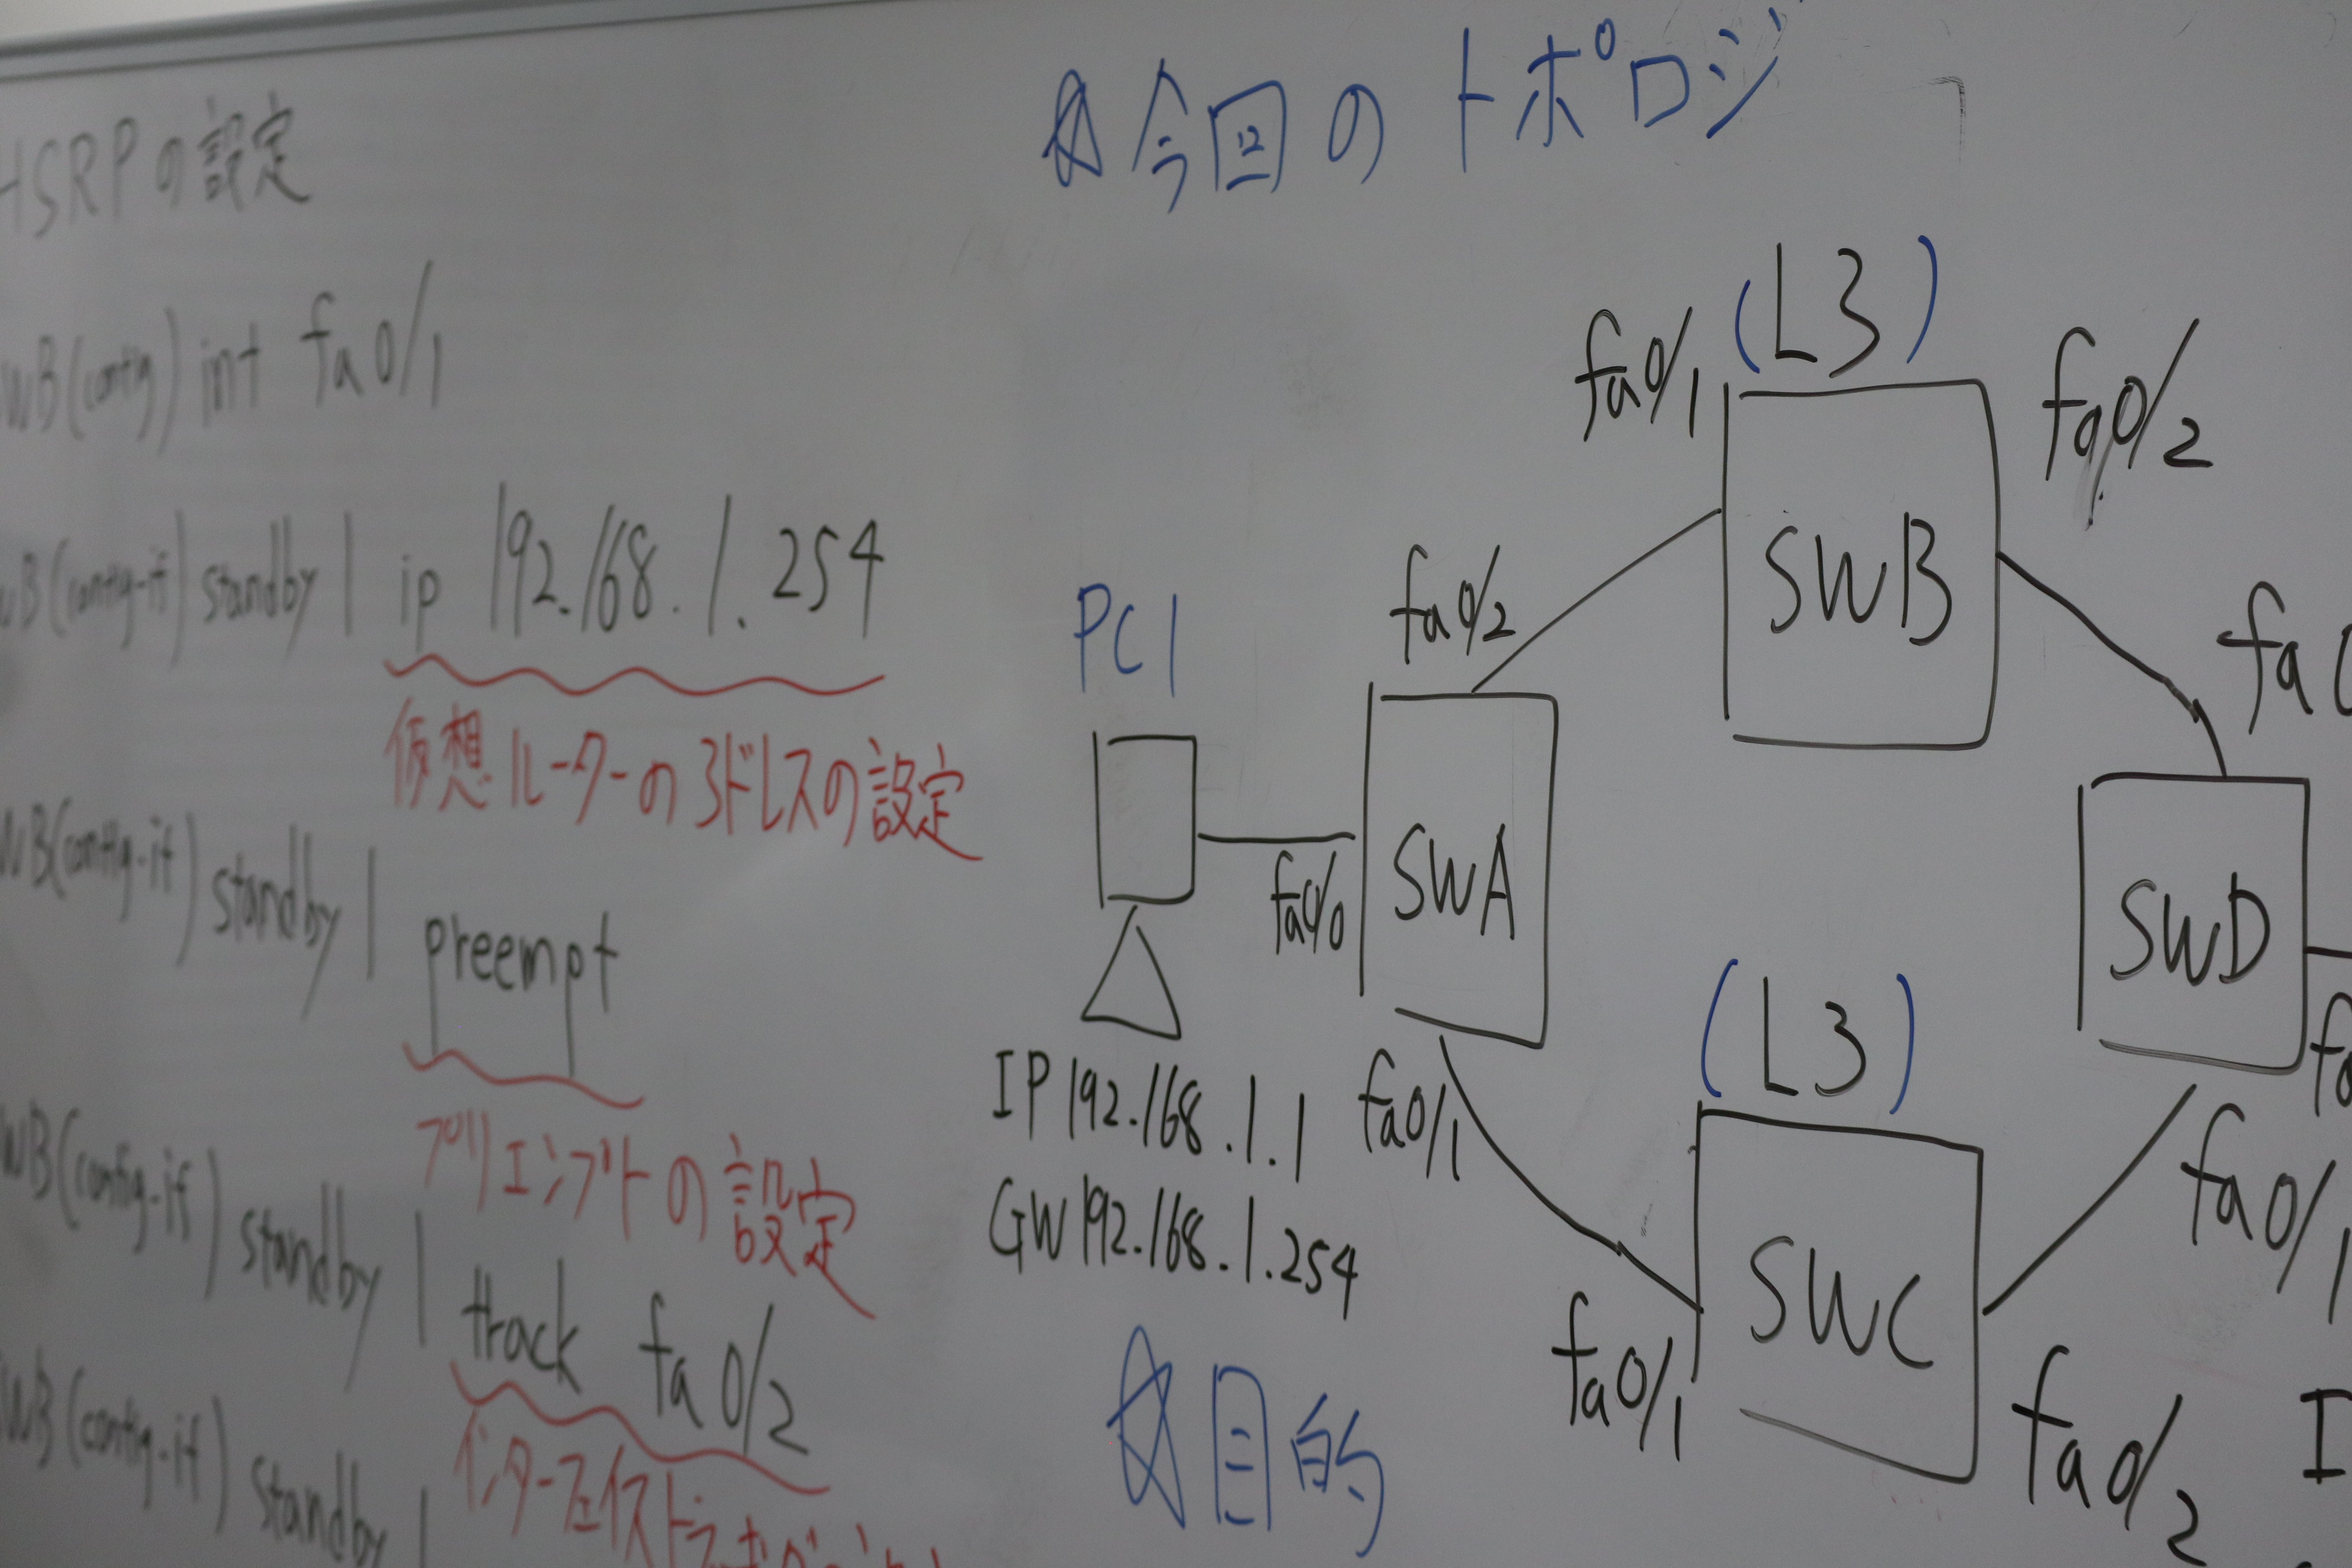 HSRPの設定
SWB(config) int fa0/1
WB(config-if) standby 1 ip 192.168.1.254
仮想ルーターのアドレスの設定
WB(config-if) standby 1 preempt
プリエンプトの設定
WB(config-if) standby 1 track fa0/2
インターフェイストラッキング
WB(config-if) standby 1
☆今回のトポロジ
(L3)
fa0/1
fa0/2
SWB
PC1
fa0/2
fa0
SWA
fa0/0
SWD
IP 192.168.1.1
GW 192.168.1.254
fa0/1
(L3)
fa0/1
SWC
fa0/1
fa0/2
fa
I
☆目的